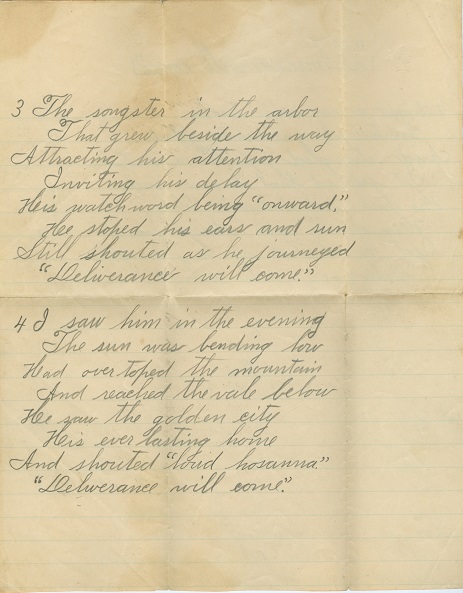 3 The songster in the arbor
That grew beside the way
Attracting his attention
Inviting his delay
His watchword being "onward."
He stoped his ears and run
Still shouted as he journeyed
"Deliverance will come."
4 I saw him in the evening
The sun was bending low
Had overtoped the mountain
And reached the vale below
He saw the golden city
His everlasting home
And shouted "loud hosanna."
"Deliverance will come."